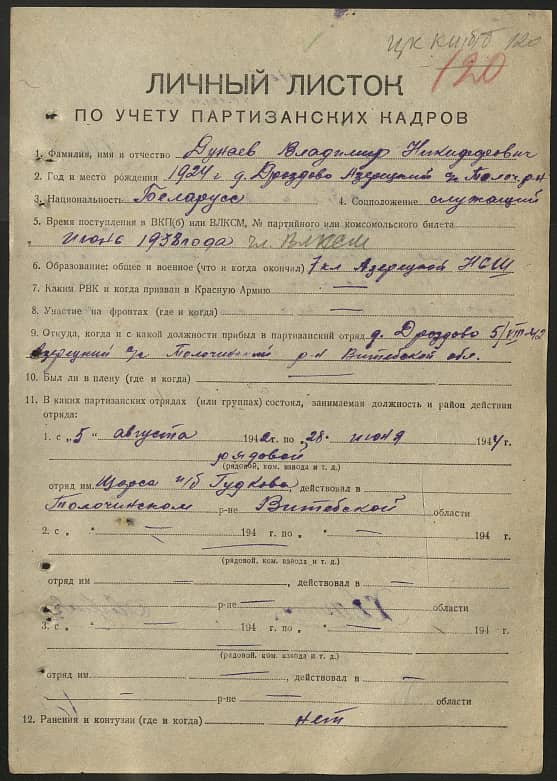 ЦК КП(б)Б 120
120
ЛИЧНЫЙ ЛИСТОК
ПО УЧЕТУ ПАРТИЗАНСКИХ КАДРОВ
1. Фамилия, имя и отчество Дунаев Владимир Никифорович
2. Год и место рождения 1924 г д. Дроздово Азерецкий с/с Толоч. р-н
3. Национальность Беларусс 4. Соцположение служащий
5. Время поступления в ВКП(б) или ВЛКСМ, № партийного или комсомольского билета
Июнь 1938 года чл. ВЛКСМ
6. Образование: общее и военное (что и когда окончил) 7 кл Азерецкой НСШ
7. Каким РВК и когда призван в Красную Армию —
8. Участие на фронтах (где и когда) —
9. Откуда, когда и с какой должности прибыл в партизанский отряд д. Дроздово 5/VIII-42
Азерецкий с/с Толочинский р-н Витебской обл.
10. Был ли в плену (где и когда) —
11. В каких партизанских отрядах (или группах) состоял, занимаемая должность и район действия
отряда:
1. с „5“ августа 1942 г. по „28“ июня 1944 г.
рядовой
(рядовой, ком. взвода и т. д.)
отряд им. Щорса п/б Гудкова, действовал в
Толочинском р-не Витебской области
2. с „ “ — 194 г. по „ “ — 194 г.
—
(рядовой, ком. взвода и т. д.)
отряд им — , действовал в —
— р-не — области
3. с „ “ — 194 г. по „ “ — 194 г.
—
(рядовой, ком. взвода и т. д.)
отряд им. — , действовал в —
— р-не — области
12. Ранения и контузии (где и когда) нет